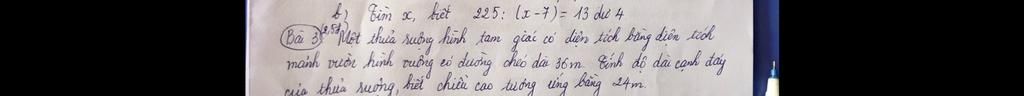 b, Tìm x, biết 225 : (x - 7) = 13 dư 4
Bài 3 (2,5đ) Một thửa ruộng hình tam giác có diện tích bằng diện tích
mảnh vườn hình vuông có đường chéo dài 36m. Tính độ dài cạnh đáy
của thửa ruộng, biết chiều cao tương ứng bằng 24m.